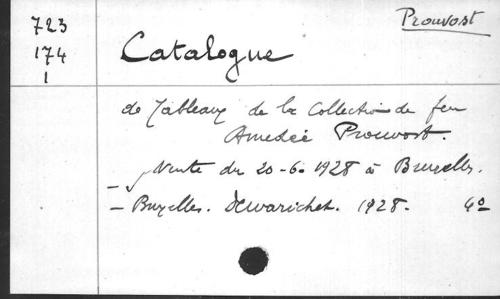 Prouvost
723
174
1
Catalogue
de Tableaux de la Collection de feu
Amedée Prouvost.
Vente du 20-6-1928 à Bruxelles.
– Bruxelles. Dewarichet. 1928. 4º